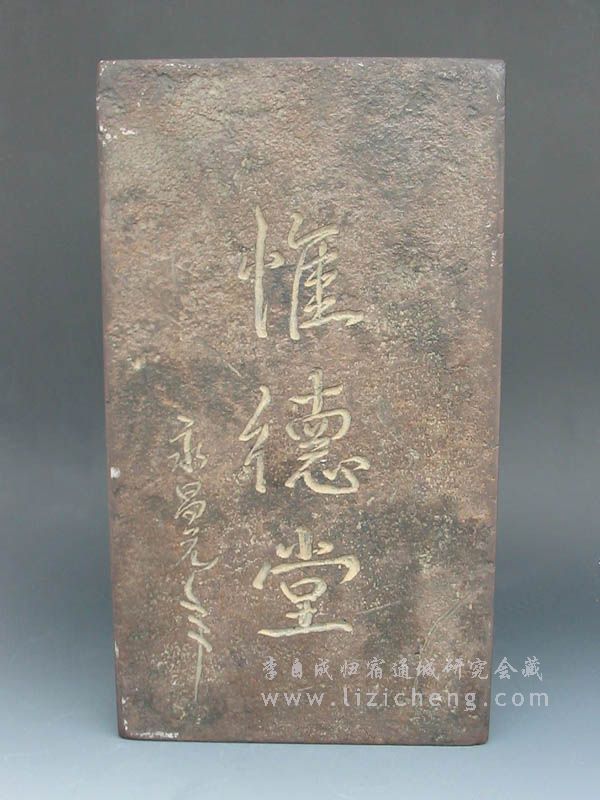 惟德堂
永昌元年
李自成归宿通城研究会藏
www.lizicheng.com